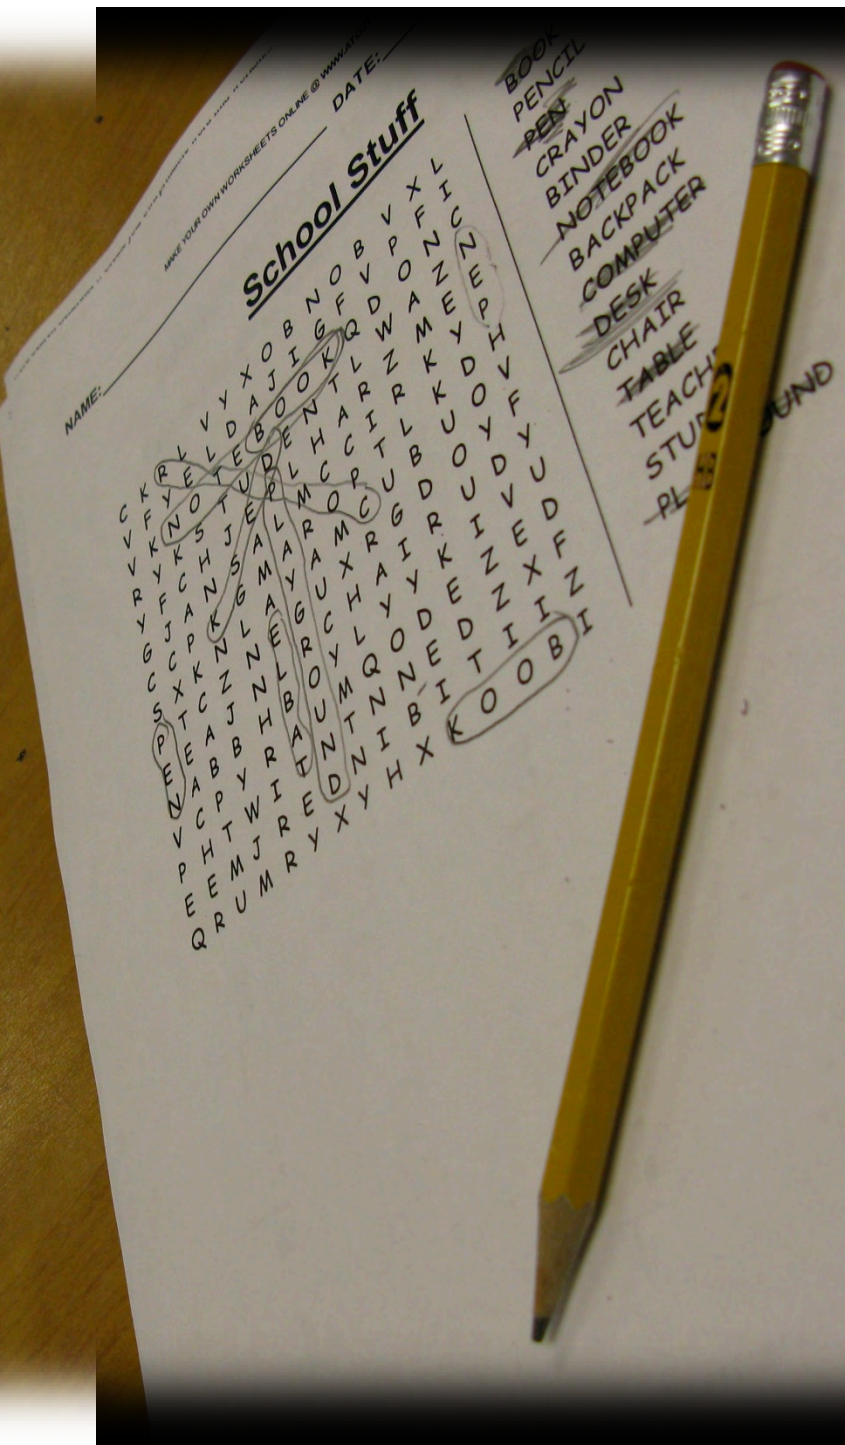 MAKE YOUR OWN WORKSHEETS ONLINE @
NAME:
DATE:
School Stuff
C K R L V Y X O B N O B V X L
V F Y E L D A J I G F V P F I
V K N O T E B O O K Q D O N C
R Y K S T U D E N T L W A Z N
Y F C H J E P L H A R Z M E E
G J A N S A L M C C I R K Y P
C C P K G M A R O P T L K D H
S X K N L A Y A M C U B U O V
P T C Z N E G U X R G D O Y F
E E A J N L R C H A I R U D Y
N A B B H B O Y L Y Y K I V U
V C P Y R A U M Q O D E Z E D
P H T W I T N T N N E D Z X F
E E M J R E D N I B I T I I Z
Q R U M R Y X Y H X K O O B I
BOOK
PENCIL
PEN
CRAYON
BINDER
NOTEBOOK
BACKPACK
COMPUTER
DESK
CHAIR
TABLE
2
HB